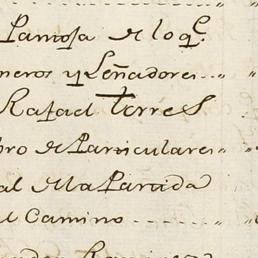 Pamosa de loq.e
neros y Leñadores
Rafael Torres
bro de Particulares
al de la Partida
al Camino